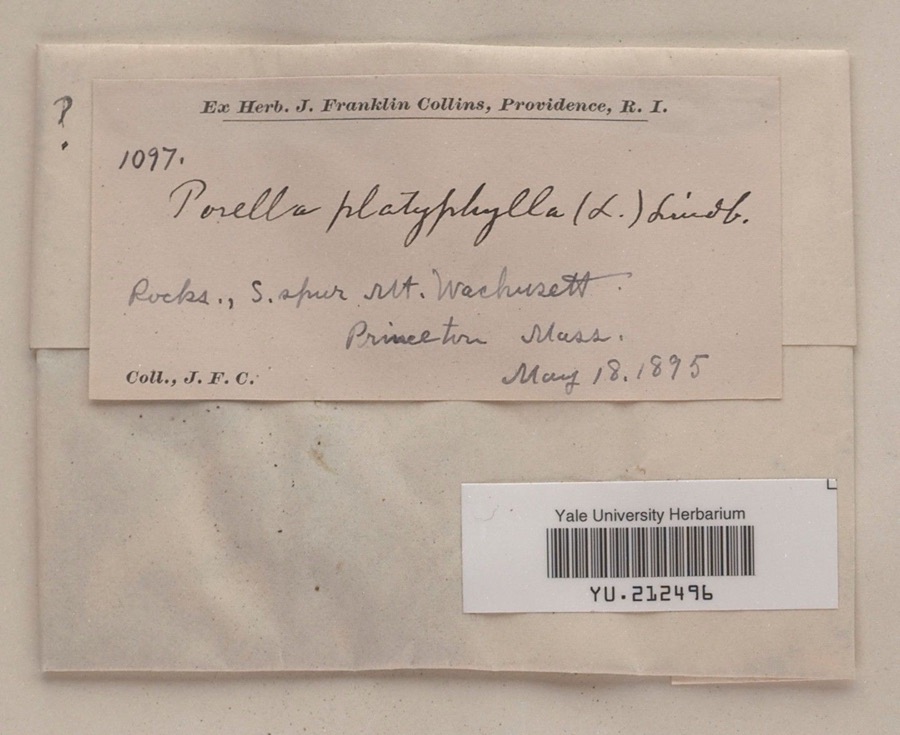 ?
Ex Herb. J. Franklin Collins, Providence, R. I.
1097.
Porella platyphylla (L.) Lindb.
Rocks., S. spur Mt. Wachusett.
Princeton Mass.
Coll., J. F. C.
May 18. 1895
Yale University Herbarium
YU.212496